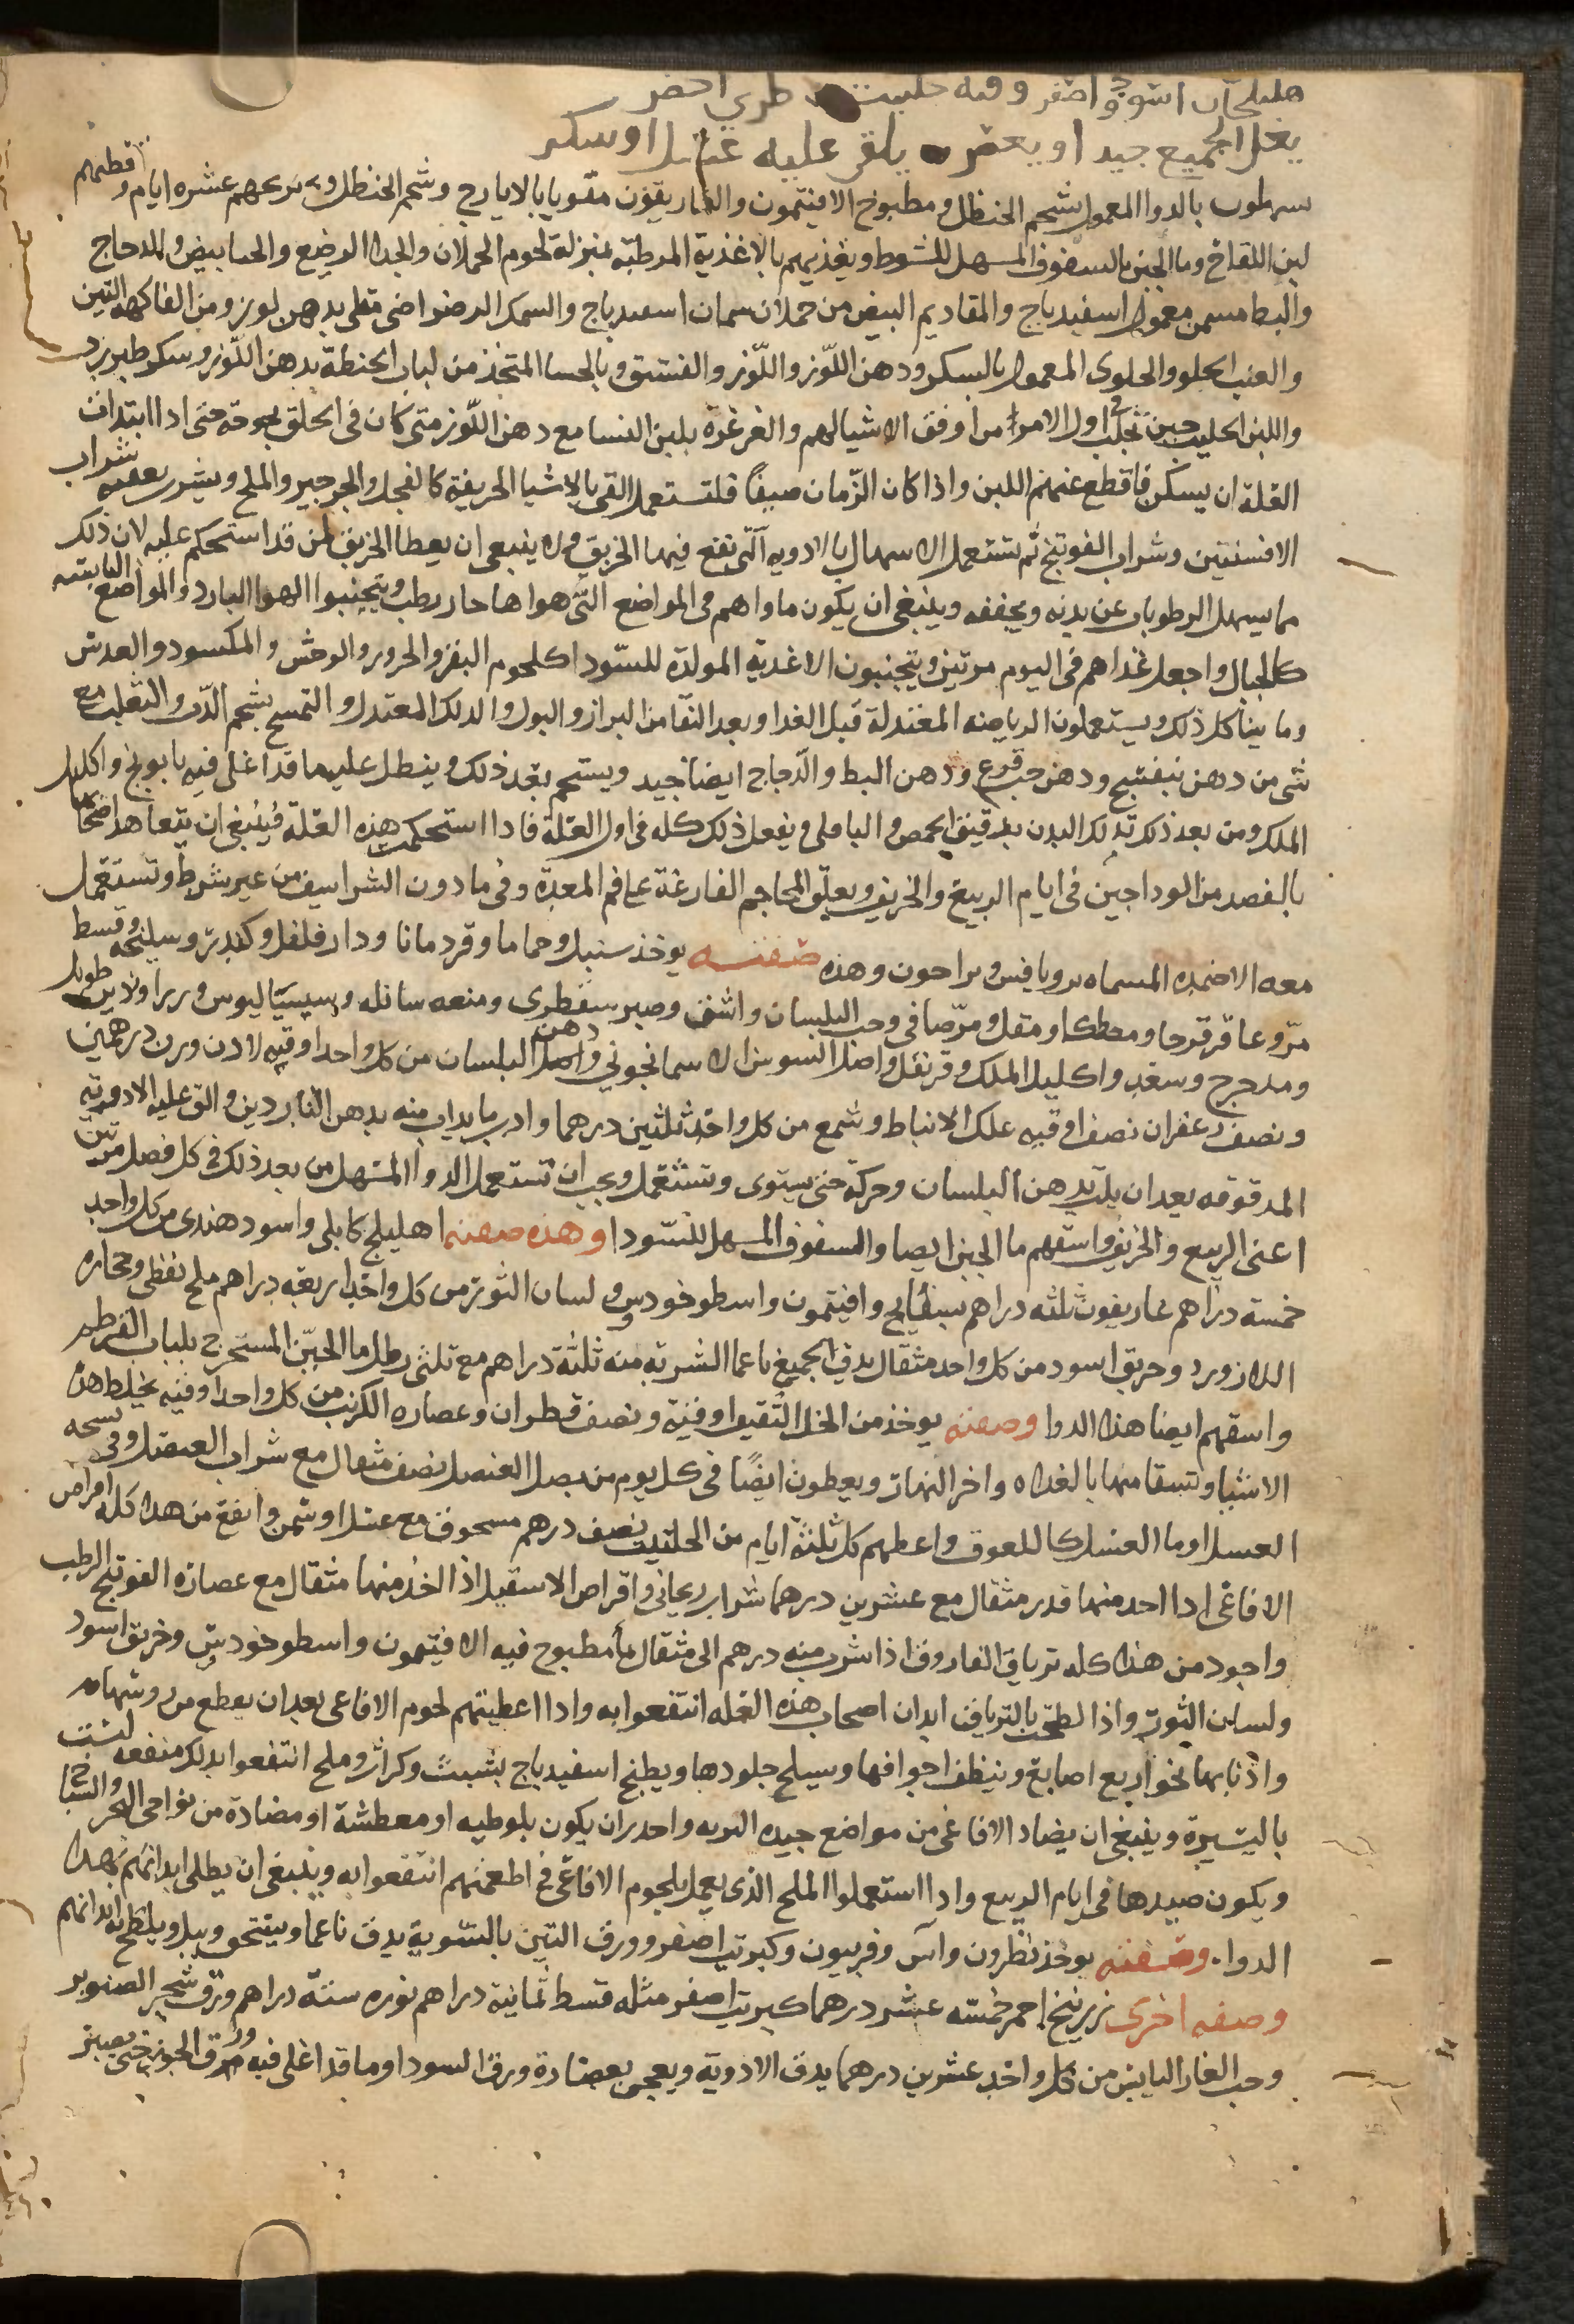 هليلجتان اسود واصفر وقيه حلتيت طري اخضر
يغلا الجميع جيد او يعصر يلقى عليه عسل او سكر
بالدوا المعمول بشحم الحنظل ومطبوخ الافيتمون والغاريقون مقويا بالايارج وشحم الحنظل عشره ايام
لبن اللقاح وما الجبن بالسفوف المسهل للسوط ويغذيهم بالاغذية المرطبة بمنزلة لحوم الحملان والجدا الرضيع والدجاج
والبط مسمن معمول اسفيدباج والمقاديم البيض من حملان سمان اسفيدباج والسمك الرضراضى مقلى بدهن لوز ومن الفاكهه التين
والعنب الحلو والحلوى المعموله بالسكر ودهن اللّوز واللّوز والفستق وبالحسا المتخذ من لباب الحنطة بدهن اللّوز وسكر طبرزد
واللبن الحليب حين يحلب في اول الامر من اوفق الاشيا لهم والغرغرة بلبن النسا مع دهن اللّوز متى كان فى الحلق بحوحة حتى اذا ابتدات
العلة ان يسكن فاقطع عنهم اللبن واذا كان الزّمان صيفًا فلتستعمل القى بالاشيا الحريفة كالفجل والجرجير والملح ويشرب بعقبه شراب
الافسنتين وشراب الفوتنج ثم تستعمل الاسهال بالادويه الّتى تقع فيها الخربق ولا ينبغى ان يعطا الخربق لمن قد استحكم عليه لان ذلك
مما يسهل الرطوبات عن بدنه ويجففه وينبغى ان يكون ماواهم فى المواضع التّى هواها حار رطب ويتجنبوا الهوا البارد والمواضع اليابسه
كالجبال واجعل غذاهم فى اليوم مرتين ويتجنبون الاغدية المولدة للسّودا كلحوم البقر والجزور والوحش والمكسود والعدس
وما يشاكل ذلك ويستعملون الرياضه المعتدلة قبل الغدا وبعد النقا من البراز والبول والدلك المعتدل والتمسح بشحم الدّب والثعلب مع
شى من دهن بنفسج ودهن حب قرع ودهن البط والدّجاج ايضا جيد ويستحم بعد ذلك وينطل عليه ما قد اغلى فيه بابونج واكليل
الملك ومن بعد ذلك تدلك البدن بدقيق الحمص والباقلى ويفعل ذلك كله فى اول العلة فاذا استحكمت هذه العلة فينبغى ان يتعاهد اصحابها
بالفصد من الوداجين فى ايام الربيع والخريف ويعلّق المحاجم الفارغة على فم المعدة وفى ما دون الشراسيف من غير شرط وتستعمل
معه الاضمده المسماه وهذه صفته يوخذ سنبل وحماما وقردمانا ودار فلفل وكندر وسليخه وقسط
مرّ وعاقرقرحا ومصطكا ومقل ومرّ صافى وحب البلسان واشق وصبر سقطرى وميعه سائله وسيساليوس وزراوند طويل
ومدحرج وسعد واكليل الملك وقرنفل واصل السوسن الاسمانجونى ودهن البلسان من كل واحد اوقيه لادن وزن درهمين
ونصف زعفران نصف اوقيه علك الانباط وشمع من كل واحد ثلثين درهما واذب ما يذاب منه بدهن الناردين والق عليه الادوية
المدقوقه بعد ان يلت بدهن البلسان وحركه حتى يستوى وتستعمل ويجب ان تستعمل الدوا المسهل من بعد ذلك فى كل فصل مرتين
اعنى الربيع والخريف واسقهم ما الجبن ايضا والسفوف المسهل للسّودا وهذه صفته اهليلج كابلى واسود هندى من كل واحد
خمسة دراهم غاريقون ثلثه دراهم بسفايج وافيتمون واسطوخودس ولسان الثور من كل واحد اربعه دراهم ملح نفطى وحجاره
اللازورد وخربق اسود من كل واحد مثقال يدق الجميع ناعما الشربه منه ثلثة دراهم مع ثلثى رطل ما الجبّن المستخرج بلباب القرطم
واسقهم ايضا هذا الدوا وصفته يوخذ من الخل الثقيف اوقية ونصف قطران وعصاره الكرنب من كل واحد اوقيه يخلط هذه
الاشيا وتسقا منها بالغداه واخر النهار ويعطون ايضًا فى كل يوم من بصل العنصل نصف مثقال مع شراب العنصل وفى نسخه
العسل او ما العسل كاللعوق واعطهم كل ثلثة ايام من الحلتيت نصف درهم مسحوق مع عسل او سمن وانفع من هذا كله اقراص
الافاعى اذا اخذ منها قدر مثقال مع عشرين درهما شراب ريحانى واقراص الاسقيل اذا اخذ منها مثقال مع عصارة الفوتنج الرطب
واجود من هذا كله ترياق الفاروق اذا شرب منه درهم الى مثقال بما مطبوخ فيه الافيتمون واسطوخودس وخربق اسود
ولسان الثور واذا لطخت بالترياق ابدان اصحاب هذه العله انتفعوا به واذا اعطيتهم لحوم الافاعى بعد ان يقطع من روسها
واذنابها نحو اربع اصابع وينظف اجوافها وسيلخ جلودها ويطبخ اسفيدباج بشبث وكراث وملح انتفعوا بذلك منفعه ليست
باليسيرة وينبغى ان يصاد الافاعى من مواضع جيده التربه واحذر ان يكون بلوطيه او معطشة او مصادة من نواحى البحر والسباخ
ويكون صيدها فى ايام الربيع واذا استعملوا الملح الذى يعمل بلحوم الافاعى فى اطعمتهم انتفعوا به وينبغى ان يطلى ابدانهم بهذا
الدوا وصفته يوخذ نطرون وآس وفربيون وكبريت اصفر وورق التين بالسّوية يدق ناعما ويسحق وببل ويلطخ به ابدانهم
وصفه اخرى زرنيخ احمر خمسه عشر درهما كبريت اصفر مثله قسط ثمانية دراهم نوره ستة دراهم ورق شجر الصنوبر
وحب الغار اليابس من كل واحد عشرين درهما يدق الادوية ويعجن بعصارة ورق السودا وما قد اغلى فيه ورق الجوز حتى يصير